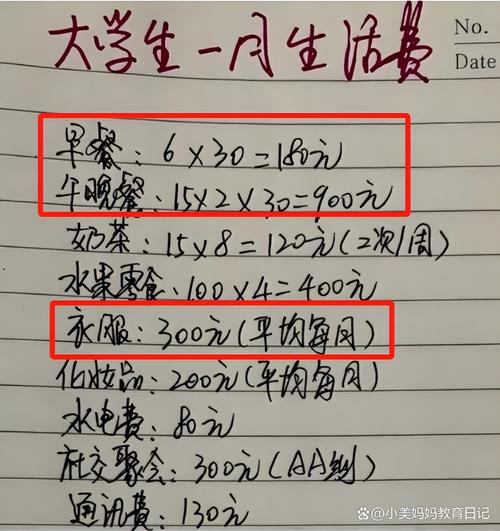 大学生一月生活费
No.
Date
早餐：6×30=180元
午晚餐：15×2×30=900元
奶茶：15×8=120元(2次/周)
水果零食：100×4=400元
衣服：300元(平均每月)
化妆品：200元(平均每月)
水电费：80元
社交聚会：300元(AA制)
通讯费：130元
@小美妈妈教育日记